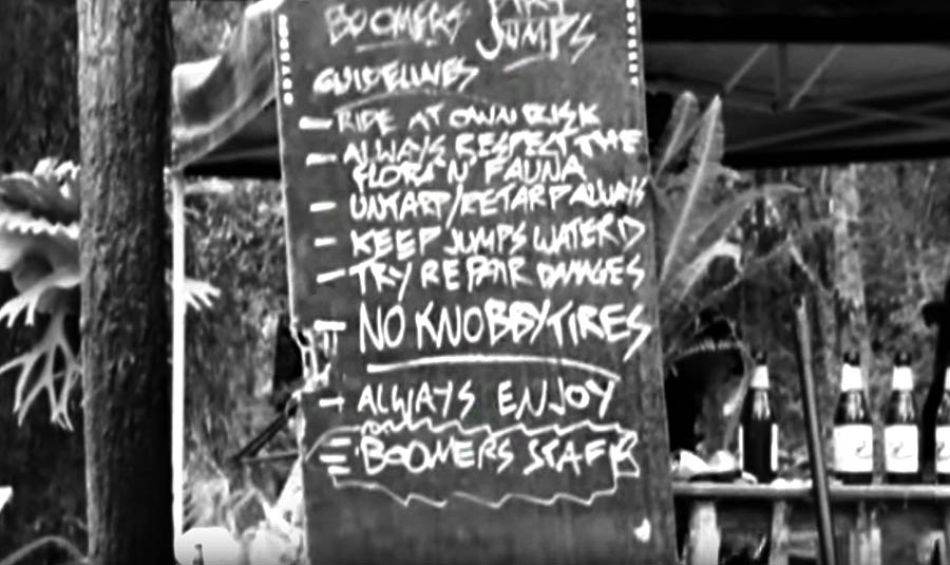 BOOMERS DIRT
JUMPS
GUIDELINES
- RIDE AT OWN RISK
- ALWAYS RESPECT THE
FLORA N' FAUNA
- UNTARP/RETARP ALWAYS
- KEEP JUMPS WATER'D
- TRY REPAIR DAMAGES
- NO KNOBBY TIRES
- ALWAYS ENJOY
BOOMERS STAFF